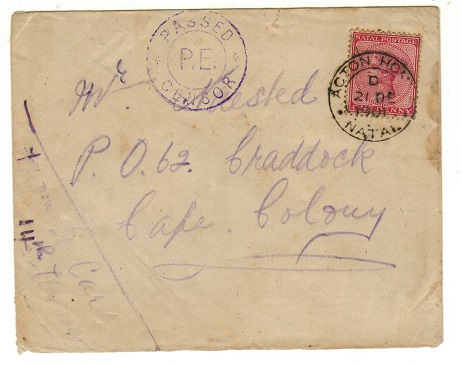 PASSED
P.E.
CENSOR
NATAL POSTAGE
PENNY
ACTON HO
D
21 DE
1901
NATAL
Mr. Kested
P. O. 62. Craddock
Cape Colony
14th